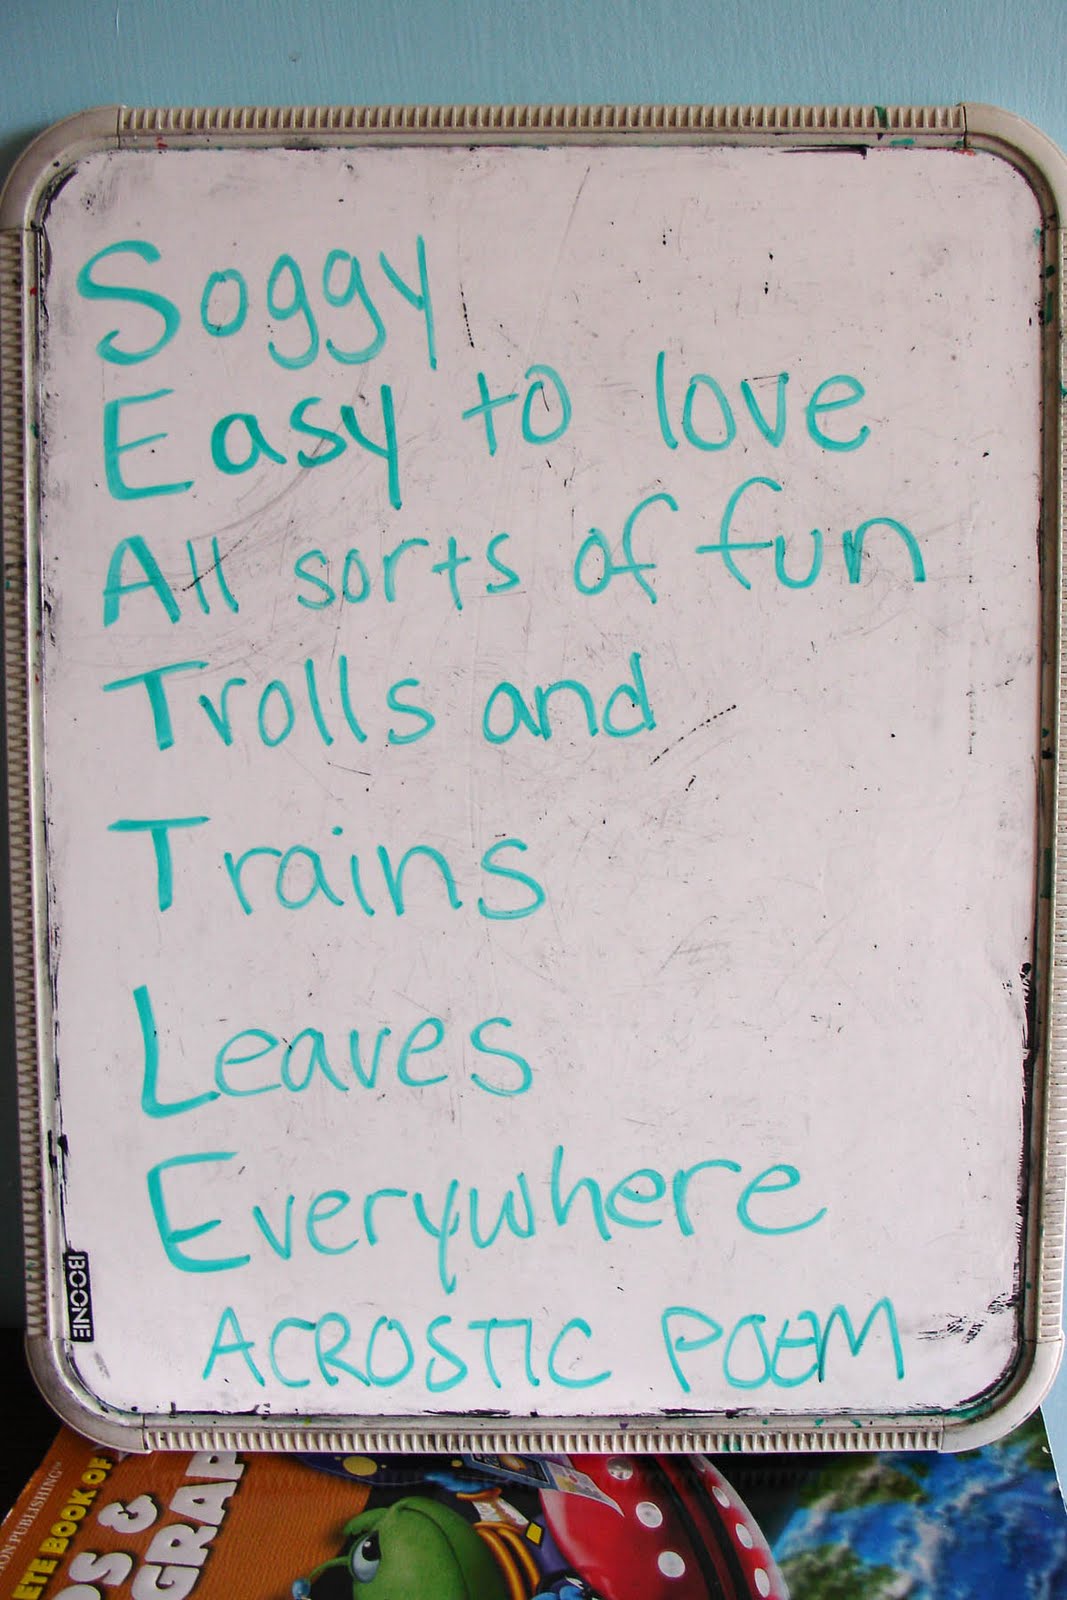 Soggy
Easy to love
All sorts of fun
Trolls and
Trains
Leaves
Everywhere
ACROSTIC POEM
BOONE
ON PUBLISHING™
ETE BOOK OF
&
GRAP